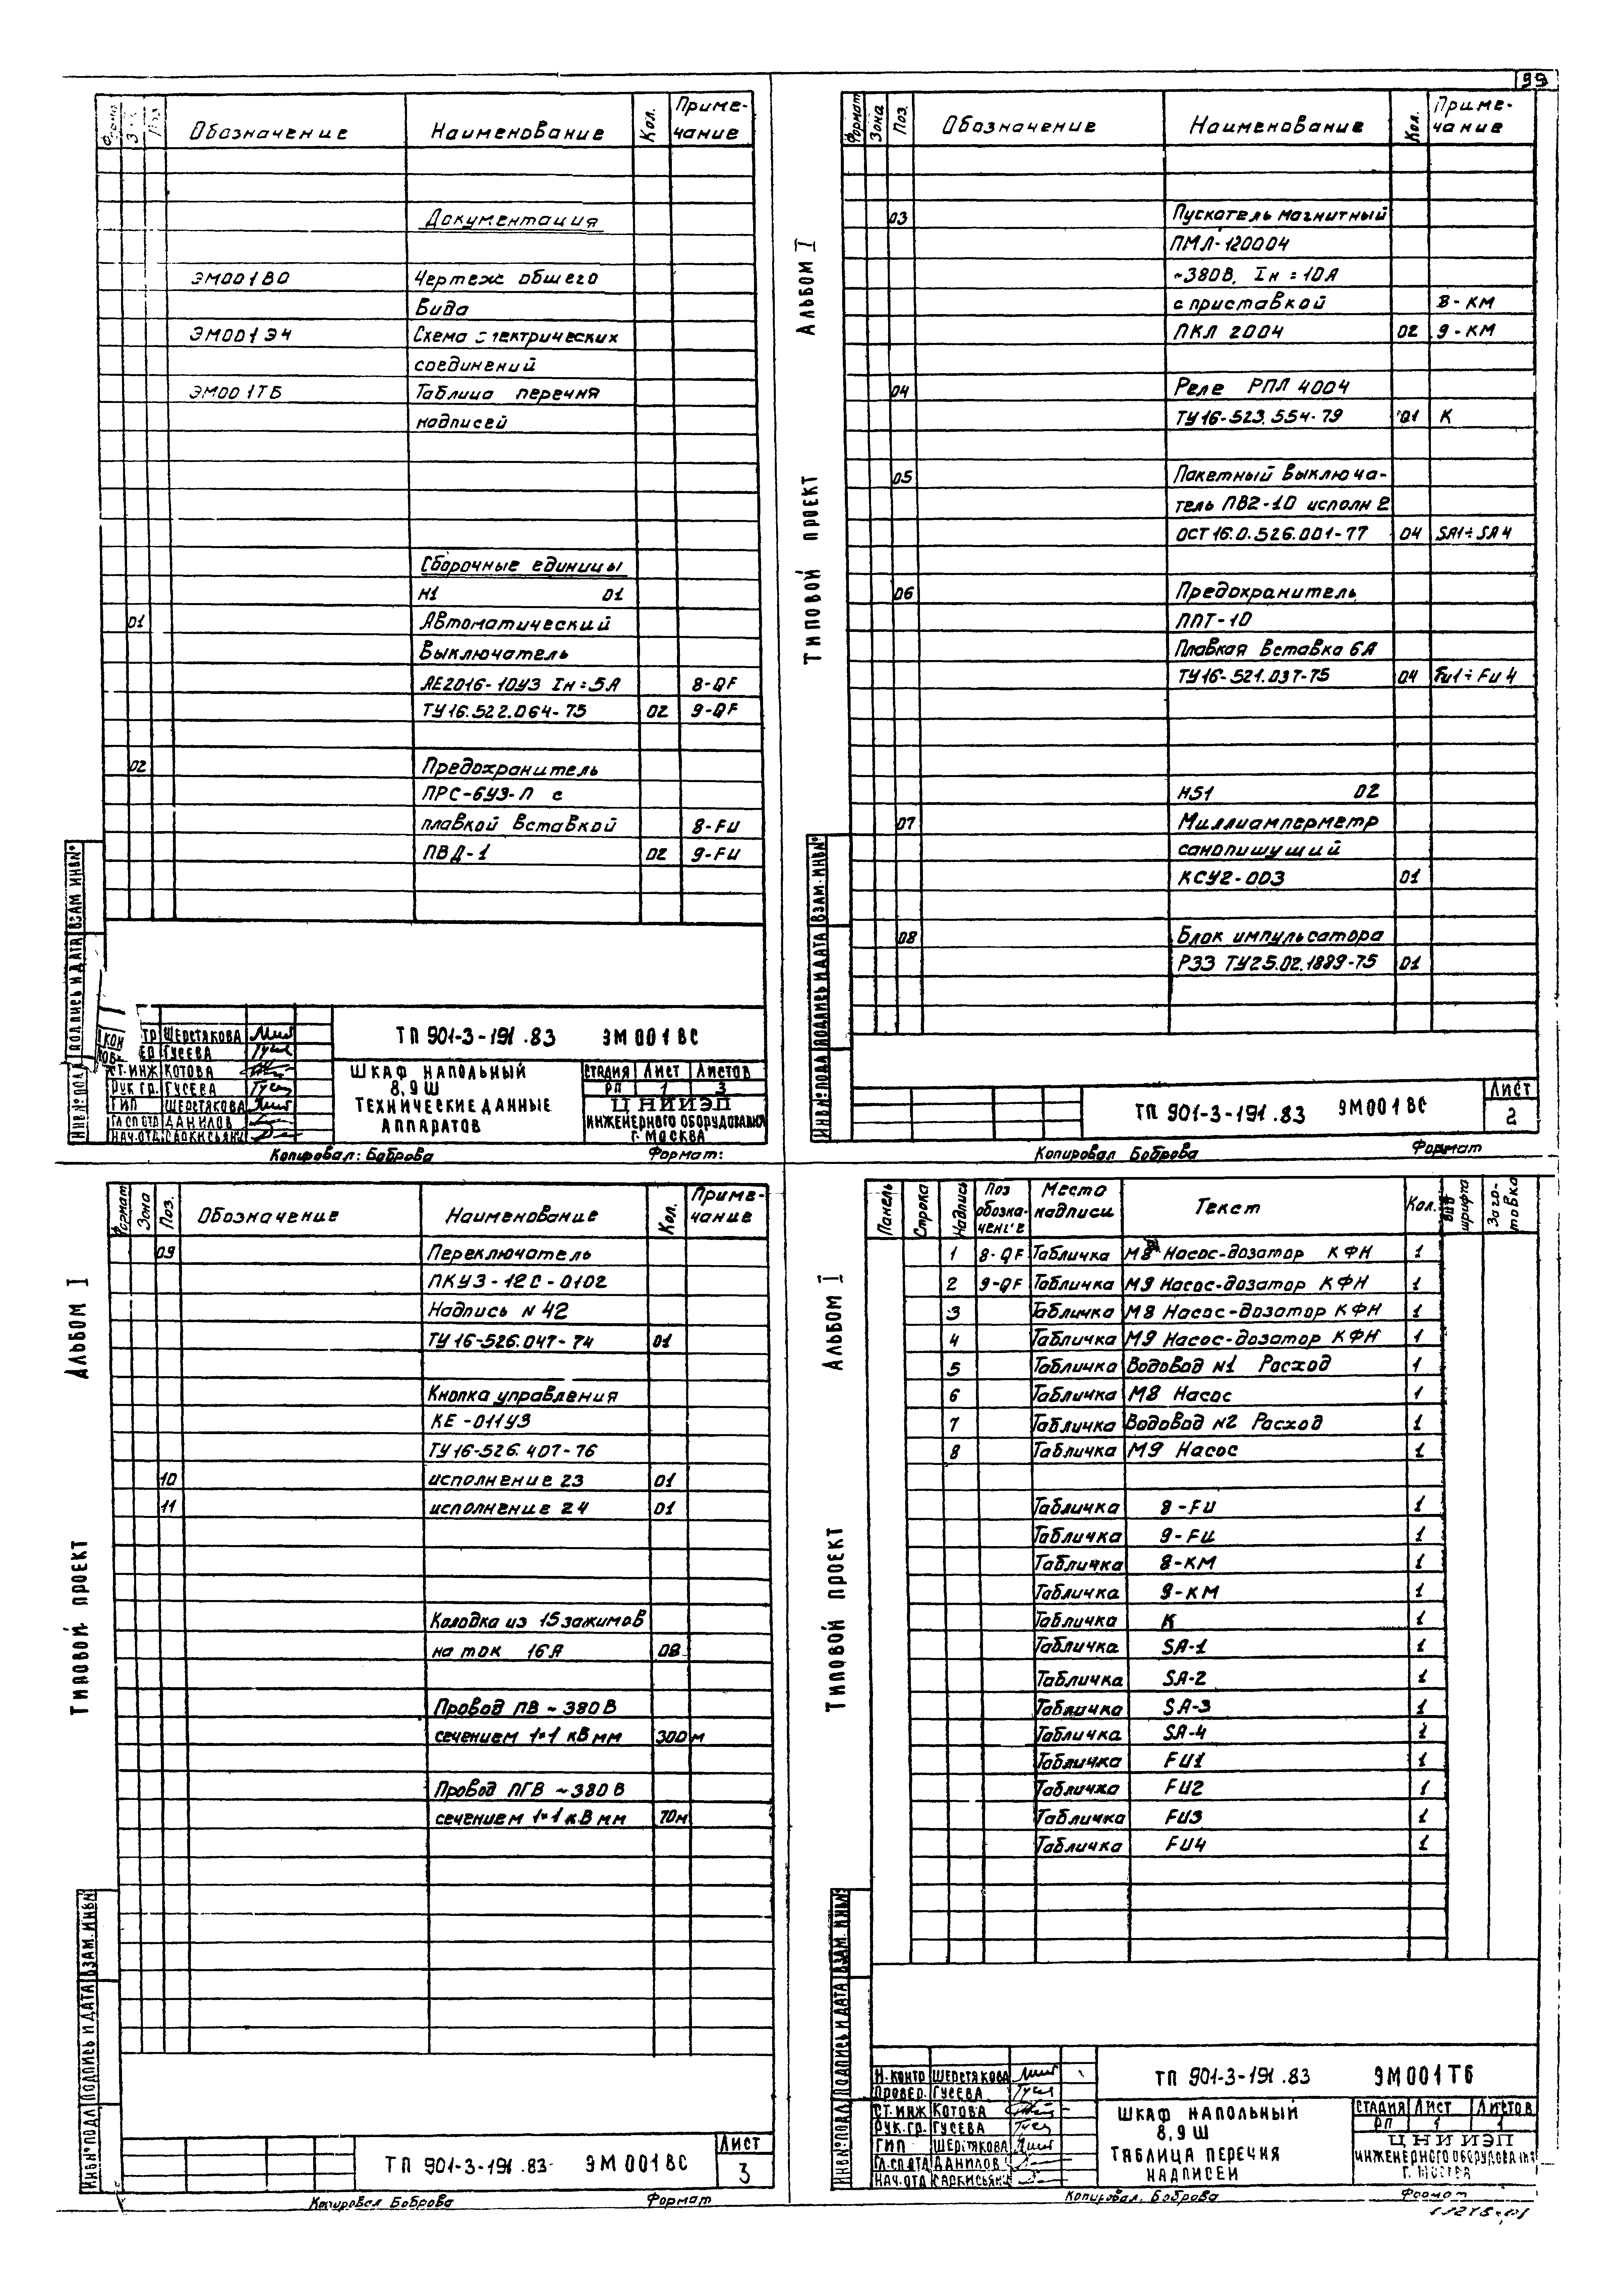 99
Формат Зона Поз. Обозначение Наименование Кол. Приме-
чание
Документация
ЭМ001ВО Чертеж общего
вида
ЭМ001Э4 Схема электрических
соединений
ЭМ001ТБ Таблица перечня
надписей
Сборочные единицы
Н1 01
01 Автоматический
выключатель
АЕ2016-10У3 Iн=5А 8-QF
ТУ16.522.064-75 02 9-QF
02 Предохранитель
ПРС-6У3-П с
плавкой вставкой 8-FU
ПВД-1 02 9-FU
ИНВ№ПОДЛ ПОДПИСЬ И ДАТА ВЗАМ ИНВ№
ШЕРСТЯКОВА
ГУСЕВА
СТ.ИНЖ КОТОВА
РУК.ГР. ГУСЕВА
ГИП ШЕРСТЯКОВА
ГЛ.СП ОТД ДАНИЛОВ
НАЧ.ОТД САРКИСЬЯНЦ
ТП 901-3-191.83 ЭМ001ВС
ШКАФ НАПОЛЬНЫЙ
8,9Ш
ТЕХНИЧЕСКИЕ ДАННЫЕ
АППАРАТОВ
СТАДИЯ ЛИСТ ЛИСТОВ
РП 1 3
ЦНИИЭП
ИНЖЕНЕРНОГО ОБОРУДОВАНИЯ
Г. МОСКВА
Копировал: Боброва Формат:
ТИПОВОЙ ПРОЕКТ АЛЬБОМ I
Формат Зона Поз. Обозначение Наименование Кол. Приме-
чание
03 Пускатель магнитный
ПМЛ-120004
~380В, Iн=10А
с приставкой 8-КМ
ПКЛ 2004 02 9-КМ
04 Реле РПЛ 4004
ТУ16-523.554-79 01 К
05 Пакетный выключа-
тель ПВ2-10 исполн 2
ОСТ 16.0.526.001-77 04 SA1÷SA4
06 Предохранитель
ППТ-10
Плавкая вставка 6А
ТУ16-521.037-75 04 Fu1÷Fu4
Н51 02
07 Миллиамперметр
самопишущий
КСУ2-003 01
08 Блок импульсатора
РЗЗ ТУ25.02.1889-75 01
ИНВ№ПОДЛ ПОДПИСЬ И ДАТА ВЗАМ. ИНВ№
ТП 901-3-191.83 ЭМ001ВС
ЛИСТ
2
Копировал Боброва Формат
ТИПОВОЙ ПРОЕКТ АЛЬБОМ I
Формат Зона Поз. Обозначение Наименование Кол. Приме-
чание
09 Переключатель
ПКУ3-12С-0102
Надпись N 42
ТУ 16-526.047-74 01
Кнопка управления
КЕ-011У3
ТУ16-526.407-76
10 исполнение 23 01
11 исполнение 24 01
Колодка из 15 зажимов
на ток 16А 08
Провод ПВ ~380В
сечением 1×1 кв мм 300м
Провод ПГВ ~380В
сечением 1×1 кв мм 70м
ИНВ№ПОДЛ ПОДПИСЬ И ДАТА ВЗАМ. ИНВ№
ТП 901-3-191.83 ЭМ001ВС
ЛИСТ
3
Копировал Боброва Формат
ТИПОВОЙ ПРОЕКТ АЛЬБОМ I
Панель Строка Надпись Поз обозна-чение Место надписи Текст Кол. Вид шрифта Заго-товка
1 8-QF Табличка М8 Насос-дозатор КФН 1
2 9-QF Табличка М9 Насос-дозатор КФН 1
3 Табличка М8 Насос-дозатор КФН 1
4 Табличка М9 Насос-дозатор КФН 1
5 Табличка Водовод N1 Расход 1
6 Табличка М8 Насос 1
7 Табличка Водовод N2 Расход 1
8 Табличка М9 Насос 1
Табличка 8-FU 1
Табличка 9-FU 1
Табличка 8-КМ 1
Табличка 9-КМ 1
Табличка К 1
Табличка SA-1 1
Табличка SA-2 1
Табличка SA-3 1
Табличка SA-4 1
Табличка FU1 1
Табличка FU2 1
Табличка FU3 1
Табличка FU4 1
ИНВ№ПОДЛ ПОДПИСЬ И ДАТА ВЗАМ. ИНВ№
Н.КОНТР ШЕРСТЯКОВА
ПРОВЕР. ГУСЕВА
СТ.ИНЖ КОТОВА
РУК.ГР. ГУСЕВА
ГИП ШЕРСТЯКОВА
ГЛ.СП ОТД ДАНИЛОВ
НАЧ.ОТД САРКИСЬЯНЦ
ТП 901-3-191.83 ЭМ001ТБ
ШКАФ НАПОЛЬНЫЙ
8,9Ш
ТАБЛИЦА ПЕРЕЧНЯ
НАДПИСЕЙ
СТАДИЯ ЛИСТ ЛИСТОВ
РП 1 1
ЦНИИЭП
ИНЖЕНЕРНОГО ОБОРУДОВАНИЯ
Г. МОСКВА
Копировал. Боброва Формат